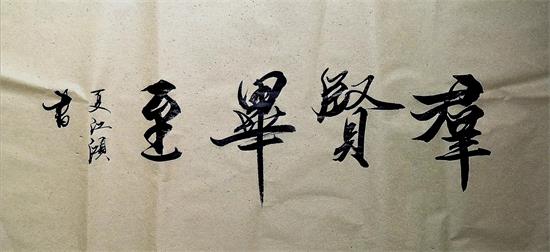 羣賢畢至
夏江濒
書